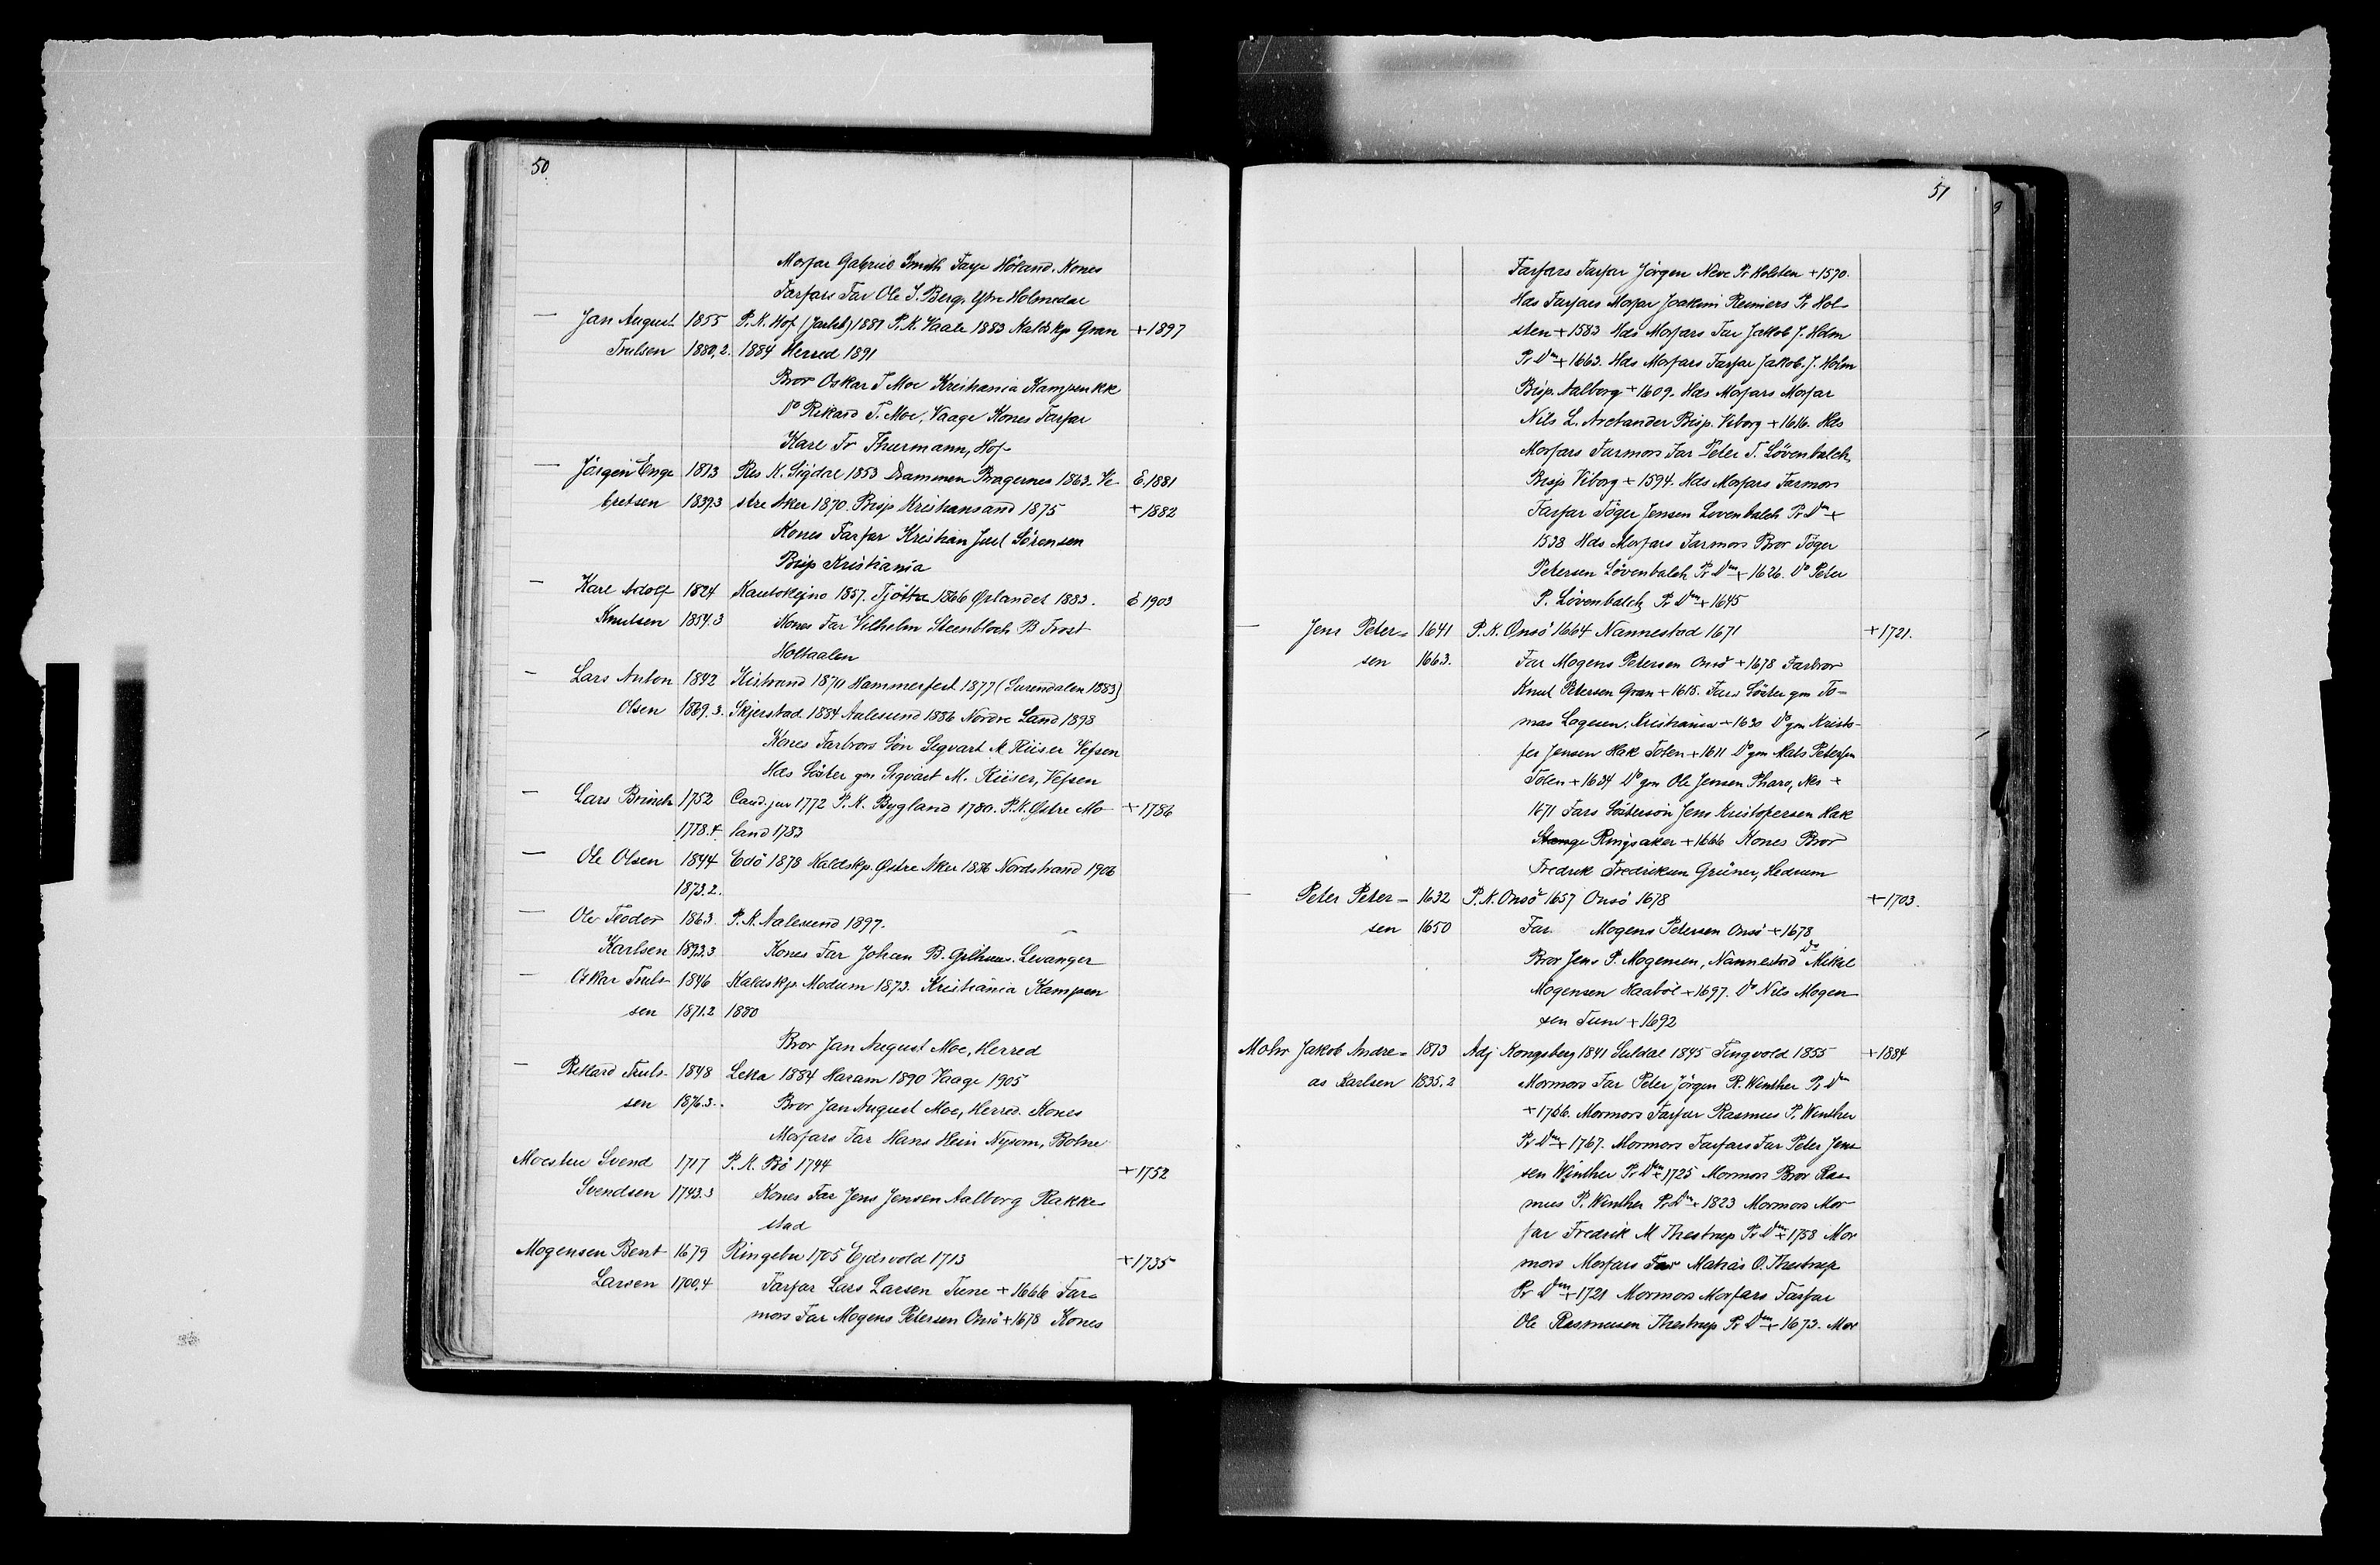 50
Morfar Gabriel Smith Faye Höland. Kones
Farfars Far Ole I. Berg, Ytre Holmedal
— Jan August 1855 P. K. Hof (Jarlsb) 1881 P. K. Vaale 1883 Kaldskp Gran +1897
Trulsen 1880,2. 1884 Herred 1891
Bror Oskar T Moe Kristiania Kampen KK
Do Rikard T. Moe, Vaage Kones Farfar
Karl Fr Thurmann, Hof
— Jörgen Enge 1813 Res K. Sigdal 1853 Drammen Bragernes 1863. Ve E. 1881
bretsen 1839.3 stre Aker 1870. Bisp Kristiansand 1875 +1882
Kones Farfar Kristian Juel Sörensen
Bisp Kristiania
— Karl Adolf 1824 Kautokejno 1857. Tjötta 1866 Ørlandet 1883. E 1903
Knutsen 1854.3 Kones Far Vilhelm Steenbloch B Frost
Holtaalen
— Lars Anton 1842 Kistrand 1870 Hammerfest 1877 (Surendalen 1883)
Olsen 1869.3. Skjerstad 1884 Aalesund 1886 Nordre Land 1898
Kones Farbrors Sön Sigvart M. Riiser Vefsen
Hds Söster gm Sigvart M. Riiser, Vefsen
— Lars Brinch 1752 Cand. jur 1772 P. K. Bygland 1780. P. K. Østre Mo +1786
1778.4. land 1783
— Ole Olsen 1844 Edö 1878 Kaldskp. Østre Aker 1886 Nordstrand 1906
1873.2.
— Ole Teodor 1863. P. K. Aalesund 1897.
Karlsen 1893.3 Kones Far Johan B. Gilhuus. Levanger
— Oskar Truls- 1846 Kaldskp. Modum 1873. Kristiania Kampen
sen 1871.2 1880
Bror Jan August Moe, Herred
— Rikard Truls- 1848 Leka 1884 Haram 1890 Vaage 1905
sen 1876.3. Bror Jan August Moe, Herred. Kones
Morfars Far Hans Hein Nysom, Botne
Moestue Svend 1717 P. K. Bö 1744 +1752
Svendsen 1743.3 Kones Far Jens Jensen Aalborg Rakke-
stad
Mogensen Bent 1679 Ringebu 1705 Ejdsvold 1713 +1735
Larsen 1700,4 Farfar Lars Larsen Tune + 1666 Far-
mors Far Mogens Petersen Onsö + 1678 Kones
51
Farfars Farfar Jörgen Neve Pr Holsten +1570.
Hds Farfars Morfar Joakim Reiniers Pr Hol-
sten + 1583 Hds Morfars Far Jakob J. Holm
Pr Dm + 1663. Hds Morfars Farfar Jakob. J. Holm
Bisp. Aalborg + 1609. Hds Morfars Morfar
Nils L. Arctander Bisp. Viborg + 1616. Hds
Morfars Farmors Far Peter T. Lövenbalch
Bisp Viborg + 1594. Hds Morfars Farmors
Farfar Töger Jensen Lovenbalch Pr Dm +
1538 Hds Morfars Farmors Bror Töger
Petersen Lövenbalch Pr Dm + 1626. Do Peter
P. Lövenbalch Pr Dm + 1645
— Jens Peter- 1641 P. K. Onsö 1664 Nannestad 1671 +1721.
sen 1663. Far Mogens Petersen Onsö + 1678 Farbror
Knut Petersen Gran + 1615. Fars Söster gm To-
mas Lagesen. Kristiania + 1630 Do gm Kristo-
fer Jensen Hak Toten + 1611 Do gm Mats Petersen
Toten + 1634 Do gm Ole Jensen Pharo, Nes +
1671 Fars Söstersön Jens Kristofersen Hak
Stange Ringsaker + 1666 Kones Bror
Fredrik Fredriksen Grüner, Hedrum
— Peter Peter- 1632 P. K. Onsö 1657 Onsö 1678 +1703.
sen 1650 Far Mogens Petersen Onsö + 1678
Bror Jens P. Mogensen, Nannestad Do Mikal
Mogensen Haaböl + 1697. Do Nils Mogen
sen Tune + 1692
Mohr Jakob Andre- 1813 Adj Kongsberg 1841 Suldal 1845 Tingvold 1855 +1884
as Karlsen 1835.2 Mormors Far Peter Jörgen R. Winther Pr Dm
+ 1766. Mormors Farfar Rasmus P. Winther
Pr Dm + 1767. Mormors Farfars Far Peter Jens
sen Winther Pr Dm + 1725 Mormors Bror Ras-
mus P. Winther Pr Dm + 1823 Mormors Mor-
far Fredrik M Thestrup Pr Dm + 1758 Mor
mors Morfars Far Matias O. Thestrup
Pr Dm + 1721 Mormors Morfars Farfar
Ole Rasmusen Thestrup Pr Dm + 1673. Mor
9